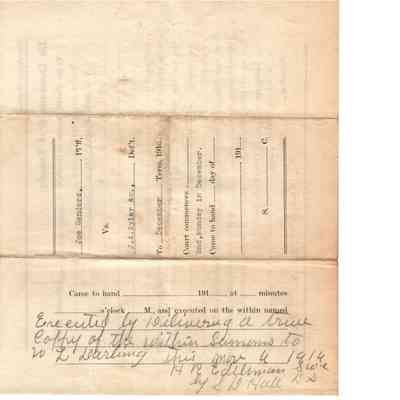 Joe Sanders, Pl't'ff,
Vs.
Def't.
To December Term, 191
Court commences
2nd, Monday in December.
Came to hand day of
191
S. C.
Came to hand 191 , at minutes
o'clock M., and executed on the within named
Executed by Delivering a true
Coppy of the within Sumons to
W L Darling this Nov 6 1914
S D Hall D S